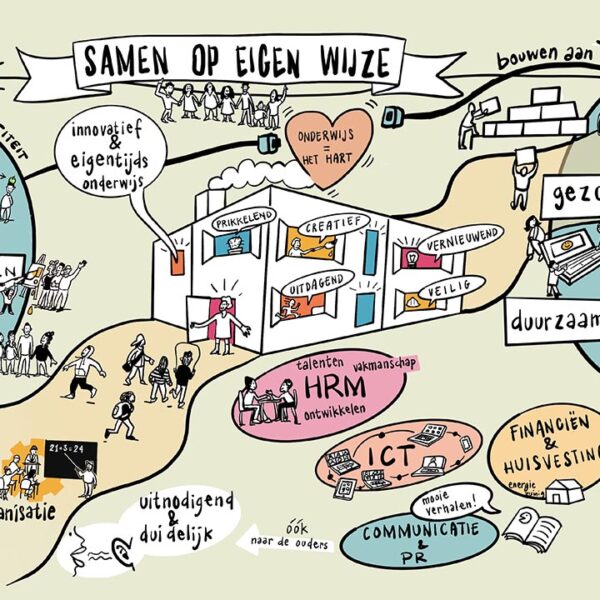 SAMEN OP EIGEN WIJZE
bouwen aan
innovatief
&
eigentijds
onderwijs
ONDERWIJS
=
HET HART
PRIKKELEND
CREATIEF
VERNIEUWEND
UITDAGEND
VEILIG
duurzaam
talenten vakmanschap
HRM
ontwikkelen
ICT
FINANCIËN
&
HUISVESTING
energie
zuinig
21+3=24
uitnodigend
&
duidelijk
óók
naar de ouders
mooie
verhalen!
COMMUNICATIE
&
PR